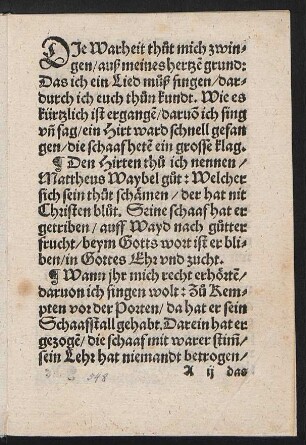 DIe Warheit thůt mich zwin-
gen/auß meines hertzē grund:
Das ich ein Lied můß singen/dar-
durch ich euch thůn kundt. Wie es
kürtzlich ist ergangē/daruō ich sing
vñ sag/ein Hirt ward schnell gefan
gen/die schaaf hetē ein grosse klag.
¶ Den Hirten thů ich nennen/
Mattheus Waybel gůt: Welcher
sich sein thůt schämen/der hat nit
Christen blůt. Seine schaaf hat er
getriben/auff Wayd nach gůtter
frucht/beym Gotts wort ist er bli-
ben/in Gottes Ehr vnd zucht.
¶ Wann jhr mich recht erhörtē/
daruon ich singen wolt: Zů Kem-
pten vor der Porten/da hat er sein
Schaafstall gehabt. Darein hat er
gezogē/die schaaf mit warer stim̄/
sein Lehr hat niemandt betrogen/
A ij das